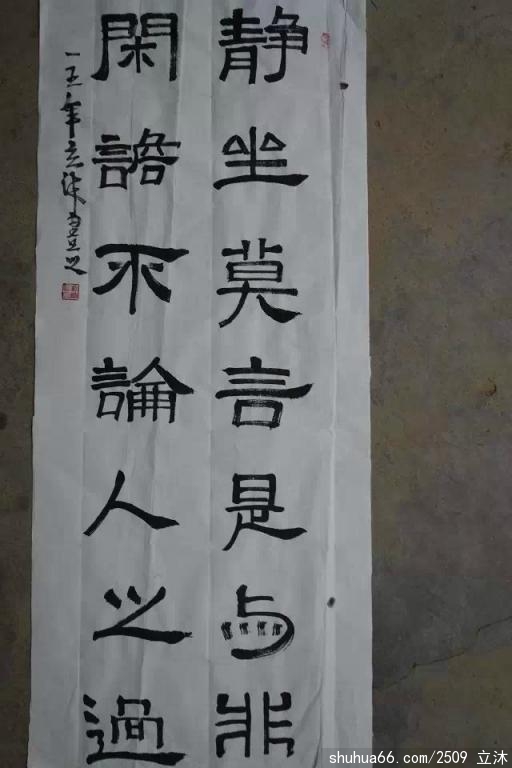 静坐莫言是与非
閑不論人之過
一五年立沐書之
shuhua66.com/2509 立沐